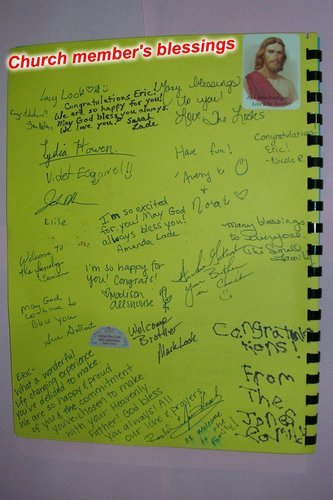 Church member's blessings
Lucy Look
Congratulations Eric!
We are so happy for you!
May God bless you always.
We love you, Sarah
Lade
Many blessings
to you!
Love The Lades
Congratulations
Eric!
-Nicole R
Lydia Howen
Violet Esquivel!!
Have fun!
Avery &
Nora &
Elise
I'm so excited
for you! May God
always bless you!
Amanda Lade
Many blessings
to everyone
The Small
Family
Welcome to
the family
I'm so happy for
you! Congrats!
Madison
Allshouse
Your Brother
in Church
May God
continue to
Bless you
Welcome
Brother
Mark Look
Congratulations!
From
The
Jones
Family
Eric-
What a wonderful,
life changing experience
you've decided to make.
We are so happy & proud
of you & the commitment
you've chosen to make
with your Heavenly
Father! God bless
you always! All
our love & prayers
P.S. Welcome
to the
Family!